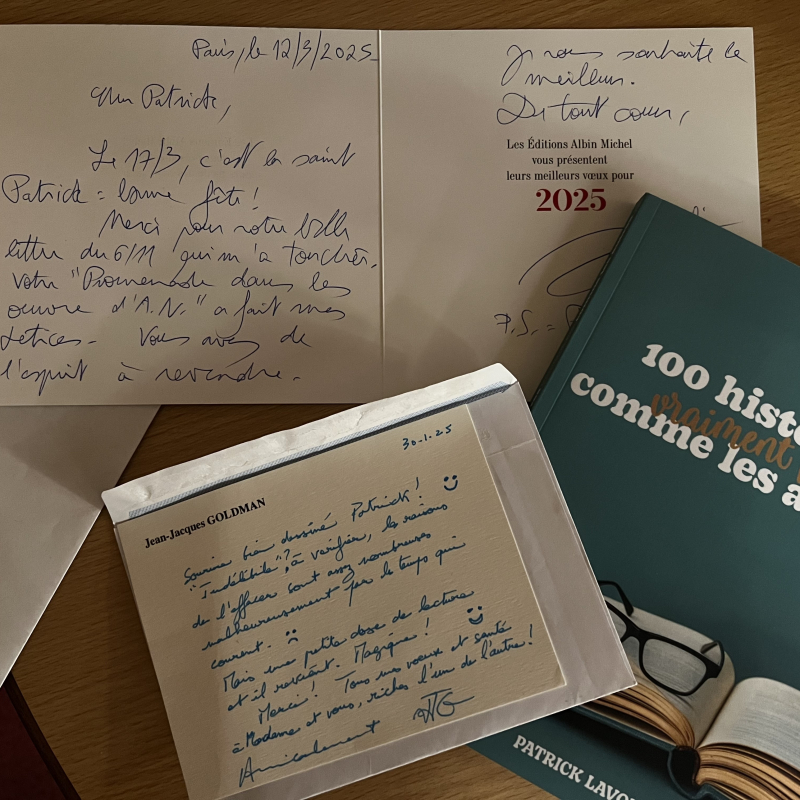 Paris, le 12/3/2025
Cher Patrick,
Le 17/3, c'est la saint
Patrick = bonne fête !
Merci pour votre belle
lettre du 6/11 qui m'a touchée.
Votre "Promenade dans les
œuvre d'A.N." a fait mes
délices. Vous avez de
l'esprit à revendre.
Je vous souhaite le
meilleur.
De tout cœur,
Les Éditions Albin Michel
vous présentent
leurs meilleurs vœux pour
2025
P.S. =
30.1.25
Jean-Jacques GOLDMAN
Sourire bien dessiné Patrick !
"Indélébile" ? à vérifier, les raisons
de l'effacer sont assez nombreuses
malheureusement par le temps qui
courent.
Mais une petite dose de lecture
et il revient. Magique !
Merci ! Tous mes vœux et santé
à Madame et vous, riches l'un de l'autre !
Amicalement JJG
100 histo
vraiment
comme les a
PATRICK LAVO